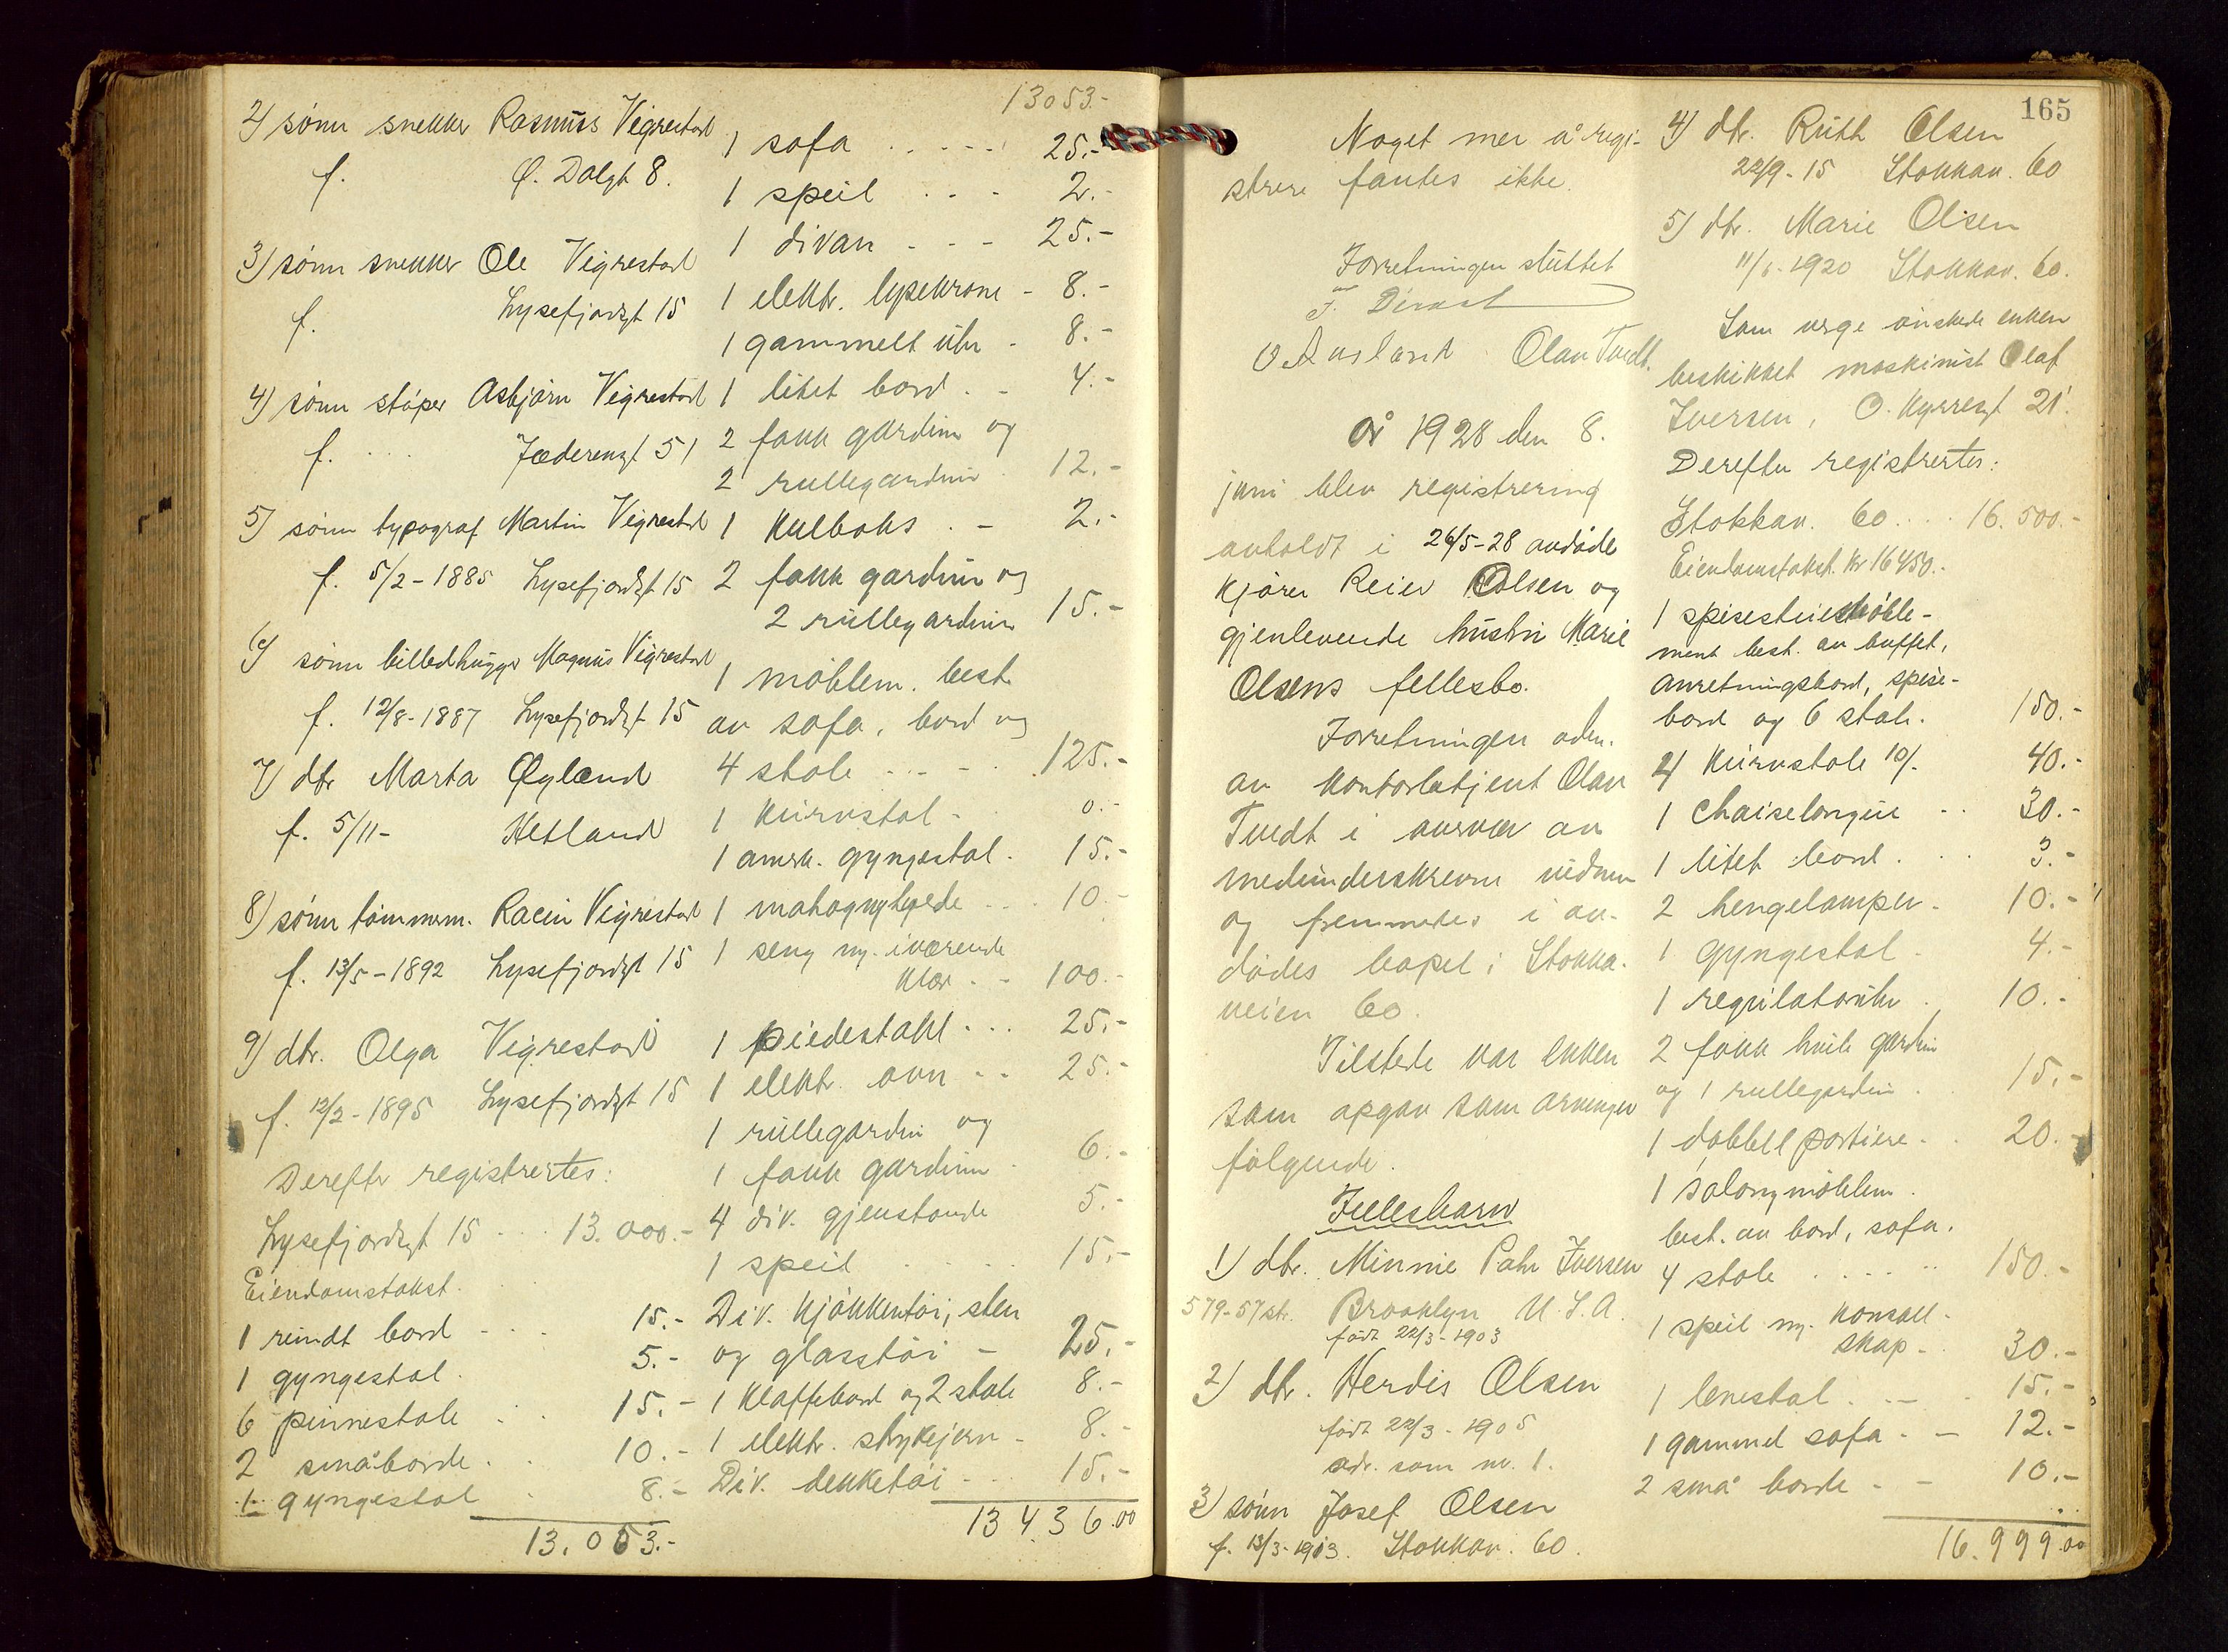 2) sønn snekker Rasmus Vigrestad
f. Ø. Dalgt 8.
3) sønn snekker Ole Vigrestad
f. Lysefjordgt 15
4) sønn støper Asbjørn Vigrestad
f. Jæderengt 51
5) sønn typograf Martin Vigrestad
f. 5/2-1885 Lysefjordgt 15
6) sønn billedhugger Magnus Vigrestad
f. 12/8-1887 Lysefjordgt 15
7) dtr Marta Øgland
f. 5/11- Hetland
8) sønn tømmerm. Racin Vigrestad
f. 13/5-1892 Lysefjordgt 15
9) dtr. Olga Vigrestad
f. 12/2-1895 Lysefjordgt 15
Derefter registrertes:
Lysefjordgt 15 ... 13.000.-
Eiendomstakst.
1 rundt bord - . . 15.-
1 gyngestol. 5.-
6 pinnestole . . 15.-
2 småborde . . 10.-
1 gyngestol . 8.-
13.053.-
13053.-
1 sofa ..... 25.-
1 speil ... 2.-
1 divan - - - 25.-
1 elektr. lysekrone - 8.-
1 gammelt uhr - 8.-
1 litet bord . - 4.-
2 fakk gardiner og
2 rullegardiner . 12.-
1 kulboks . - 2.-
2 fakk gardiner og
2 rullegardiner 15.-
1 møblem. best.
av sofa, bord og
4 stole ... 125.-
1 kurvstol - 0.-
1 amrk. gyngestol. 15.-
1 mahognyhylde ... 10.-
1 seng m. iværende
klær . - 100.-
1 piedestahl ... 25.-
1 elektr. ovn - - 25.-
1 rullegardin og
1 fakk gardiner . 6.-
4 div. gjenstande 5.-
1 speil ..... 15.-
Div. kjøkkentøi, sten
og glasstøi - 25.-
1 klaffebord og 2 stole 8.-
1 elektr. strykejern - 8.-
Div. dekketøi ... 15.-
13436.00
Noget mer å regi-
strere fantes ikke.
Forretningen sluttet
Olav Tvedt.
År 1928 den 8.
juni blev registrering
avholdt i 26/5-28 avdøde
kjører Reier Olsen og
gjenlevende hustru Marie
Olsens fellesbo.
Forretningen adm.
av kontorbetjent Olav
Tvedt i nærvær av
medunderskrevne vidner
og fremmedes i av-
dødes bopel i Stokka-
veien 60.
Tilstede var enken
som opgav som arvinger
følgende.
Fellesbarn
1) dtr. Minnie Iversen
579-57 str. Brooklyn U.S.A.
født 22/3-1903
2) dtr. Herdis Olsen
født 22/3-1905
adr. som nr. 1.
3) sønn Josef Olsen
f. 13/3-1913. Stokkav. 60.
165
4) dtr. Ruth Olsen
22/9-15 Stokkav. 60
5) dtr. Marie Olsen
11/6-1920 Stokkav. 60.
Som verge ønskede enken
beskikket maskinist Olaf
Iversen, O. Kyrresgt 21.
Derefter registrertes:
Stokkav. 60 .... 16.500.-
Eiendomstakst. kr 16450.-
1 spisestuemøble-
ment best. av buffet,
anretningsbord, spise-
bord og 6 stole. 150.-
4 kurvstole 10/- 40.-
1 chaiselongue .. 30.-
1 litet bord . . 3.-
2 hengelamper - 10.-
1 gyngestol - 4.-
1 regulatoruhr . 10.-
2 fakk hvite gardiner
og 1 rullegardin . 15.-
1 dobbelt portiere . . 20.-
1 salongmøblem.
best. av bord, sofa.
4 stole ..... 150.-
1 speil m. konsoll-
skap - 30.-
1 lenestol . - . 15.-
1 gammel sofa . - 12.-
2 små borde - - 10.-
16.999.00